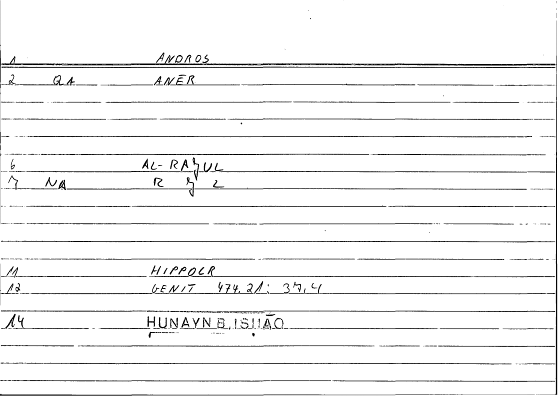 1 ANDROS
2 QA ANER
6 AL-RAJUL
7 NA R J L
11 HIPPOCR
12 GENIT 474.21: 37,4
14 HUNAYN B. ISHAQ